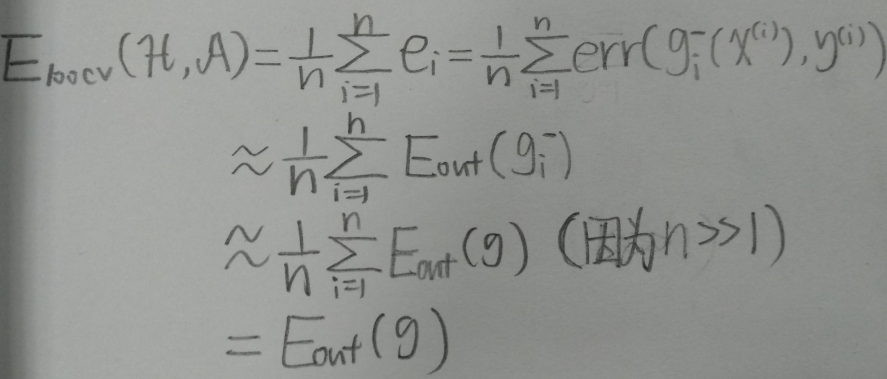 E_loocv(ℋ, 𝒜) = 1/n ∑_{i=1}^{n} e_i = 1/n ∑_{i=1}^{n} err(g_i^-(x^{(i)}), y^{(i)})
≈ 1/n ∑_{i=1}^{n} E_out(g_i^-)
≈ 1/n ∑_{i=1}^{n} E_out(g) (因为n>>1)
= E_out(g)